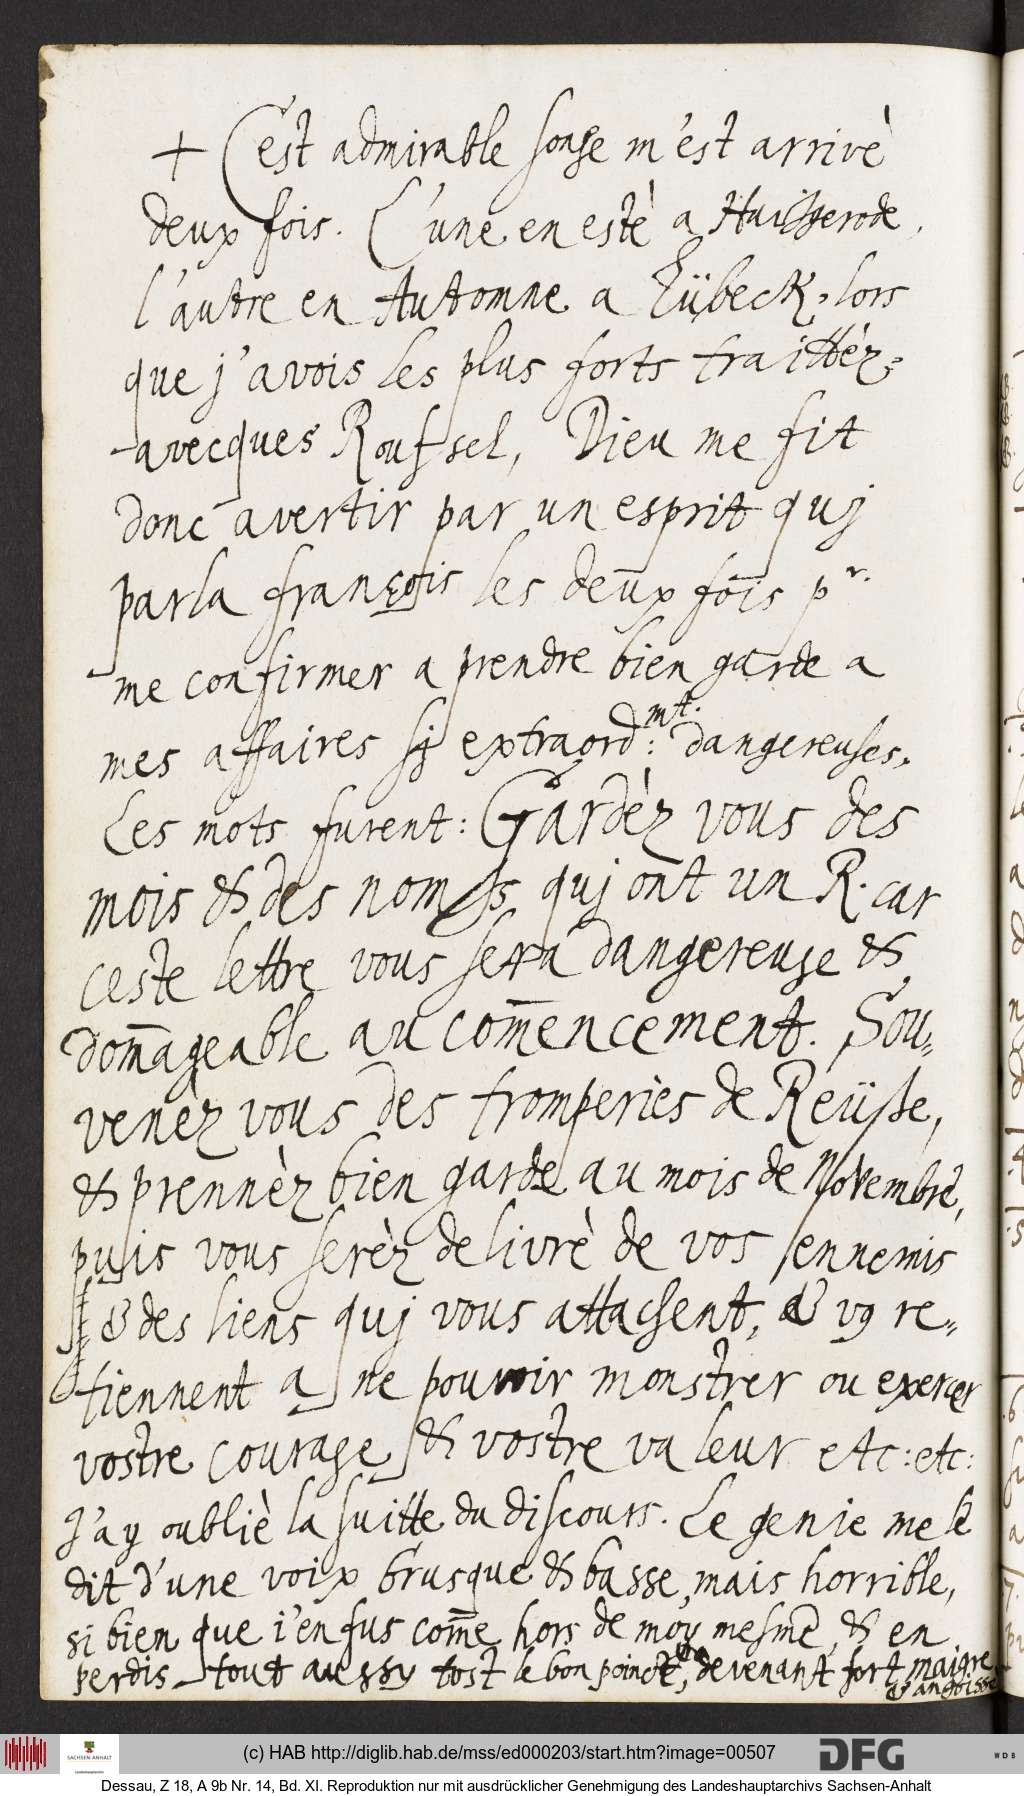 + C'est admirable songe m'est arrivè
deux fois. L'une en estè a Haitzerode,
l'autre en Automne a Lübeck, lors
que j'avois les plus forts traittéz
avecques Roussel, Dieu me fit
donc avertir par un esprit quj
parla françois les deux fois pr.
me confirmer a prendre bien garde a
mes affaires sj extraord:mt. dangereuses.
Les mots furent: Gardèz vous des
mois & des noms quj ont un R. car
ceste lettre vous sera dangereuse &
dom̄ageable au com̄encement. Sou-
venèz vous des tromperies de Reüsse,
& prennèz bien garde au mois de Novembre,
puis vous serèz delivrè de vos ennemis
& des liens quj vous attachent, & vo9 re-
tiennent a ne pouvoir monstrer ou exercer
vostre courage & vostre valeur etc: etc:
J'ay oubliè la suitte du discours. Le genie me le
dit d'une voix brusque & basse, mais horrible,
si bien que i'en fus com̄e hors de moy mesme, & en
perdis tout aussy tost le bon poinct, devenant fort maigre
& angoissè
(c) HAB http://diglib.hab.de/mss/ed000203/start.htm?image=00507
SACHSEN-ANHALT
DFG
WDB
Dessau, Z 18, A 9b Nr. 14, Bd. XI. Reproduktion nur mit ausdrücklicher Genehmigung des Landeshauptarchivs Sachsen-Anhalt